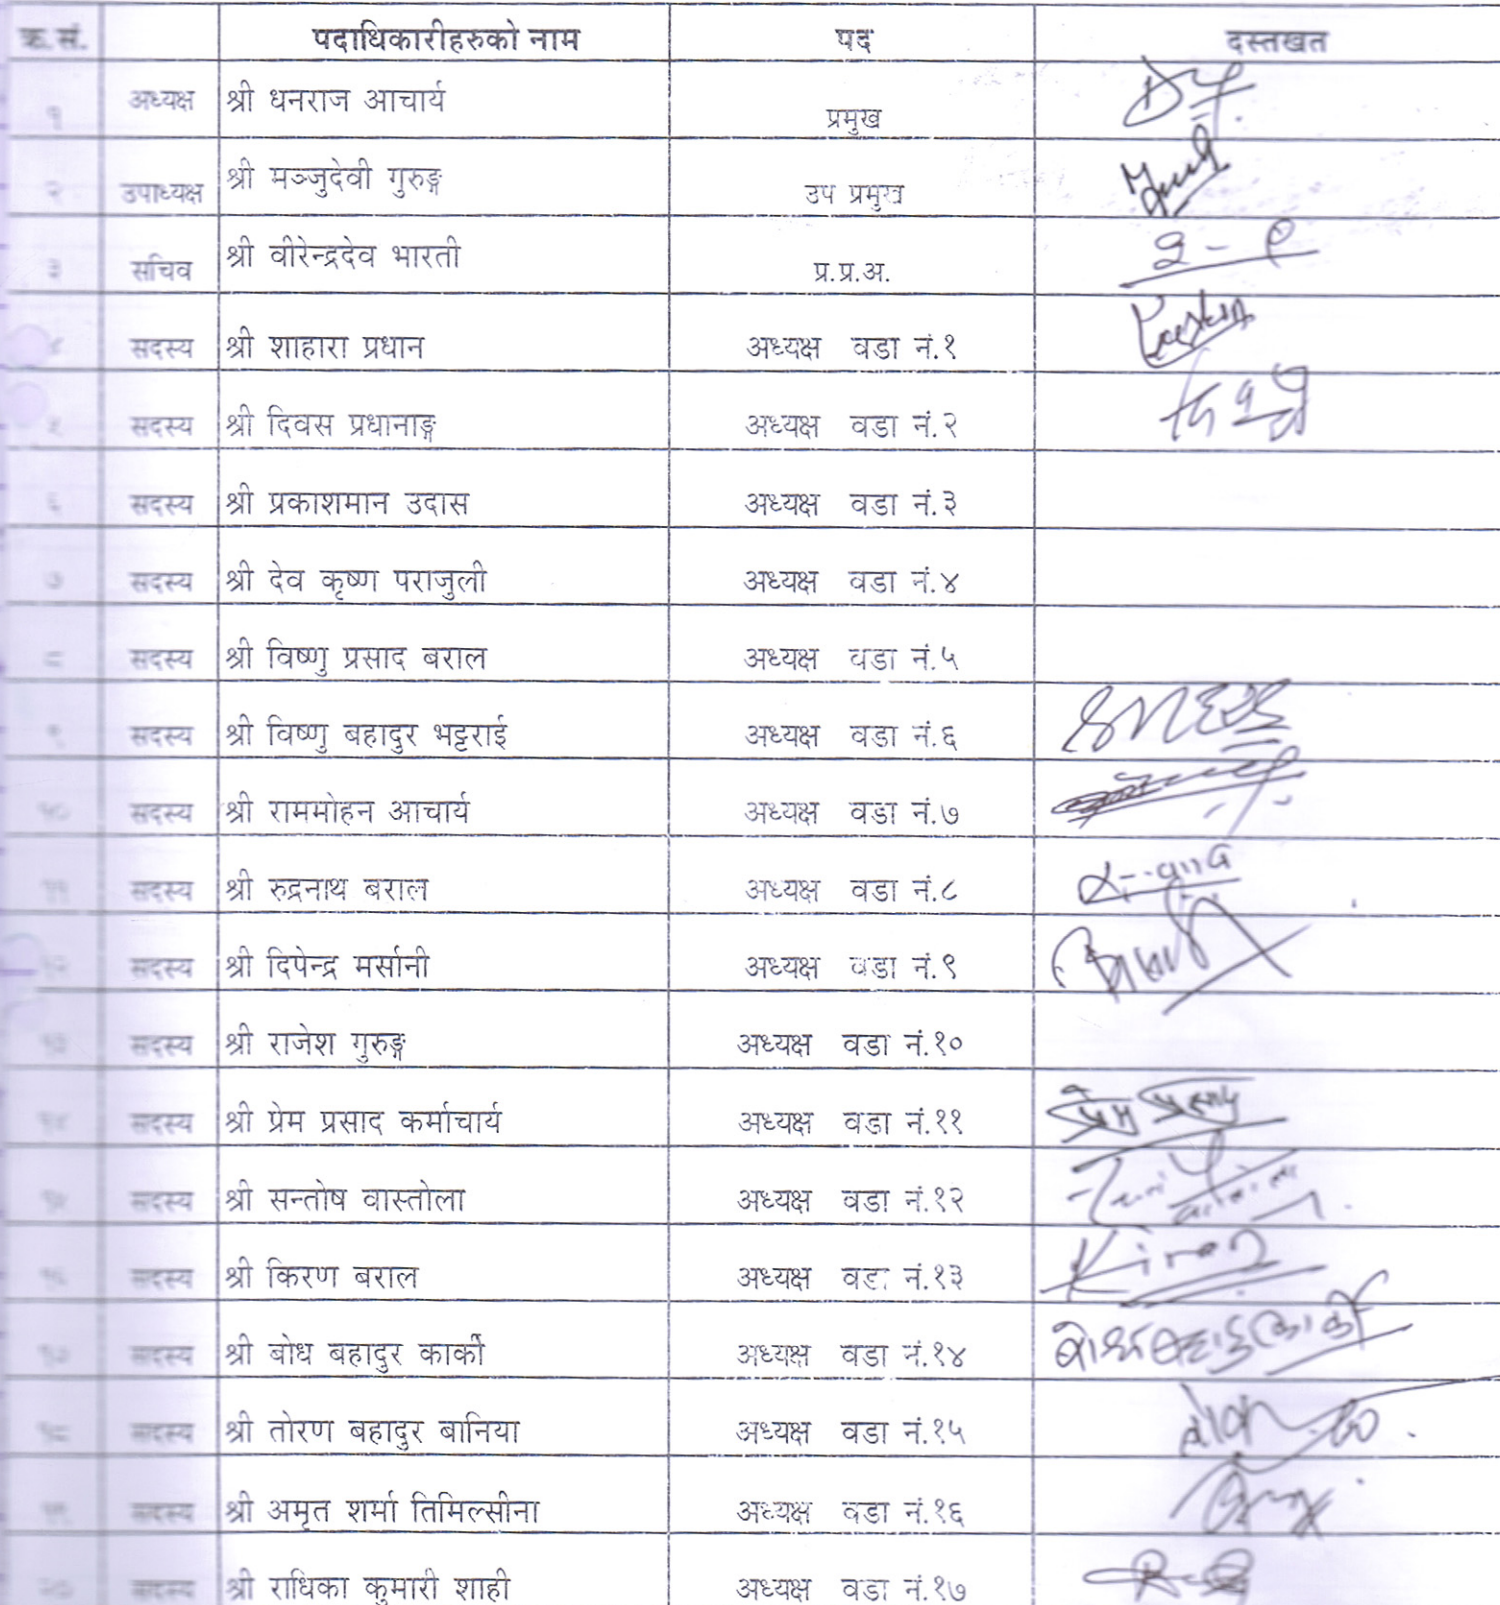 क्र.सं. पदाधिकारीहरुको नाम पद दस्तखत
१ अध्यक्ष श्री धनराज आचार्य प्रमुख
२ उपाध्यक्ष श्री मञ्जुदेवी गुरुङ्ग उप प्रमुख
३ सचिव श्री वीरेन्द्रदेव भारती प्र.प्र.अ.
४ सदस्य श्री शाहारा प्रधान अध्यक्ष वडा नं.१
५ सदस्य श्री दिवस प्रधानाङ्ग अध्यक्ष वडा नं.२
६ सदस्य श्री प्रकाशमान उदास अध्यक्ष वडा नं.३
७ सदस्य श्री देव कृष्ण पराजुली अध्यक्ष वडा नं.४
८ सदस्य श्री विष्णु प्रसाद बराल अध्यक्ष वडा नं.५
९ सदस्य श्री विष्णु बहादुर भट्टराई अध्यक्ष वडा नं.६
१० सदस्य श्री राममोहन आचार्य अध्यक्ष वडा नं.७
११ सदस्य श्री रुद्रनाथ बराल अध्यक्ष वडा नं.८
१२ सदस्य श्री दिपेन्द्र मर्सानी अध्यक्ष वडा नं.९
१३ सदस्य श्री राजेश गुरुङ्ग अध्यक्ष वडा नं.१०
१४ सदस्य श्री प्रेम प्रसाद कर्माचार्य अध्यक्ष वडा नं.११ प्रेम प्रसाद
१५ सदस्य श्री सन्तोष वास्तोला अध्यक्ष वडा नं.१२
१६ सदस्य श्री किरण बराल अध्यक्ष वडा नं.१३ Kiran
१७ सदस्य श्री बोध बहादुर कार्की अध्यक्ष वडा नं.१४ बोधबहादुर कार्की
१८ सदस्य श्री तोरण बहादुर बानिया अध्यक्ष वडा नं.१५
१९ सदस्य श्री अमृत शर्मा तिमिल्सीना अध्यक्ष वडा नं.१६
२० सदस्य श्री राधिका कुमारी शाही अध्यक्ष वडा नं.१७